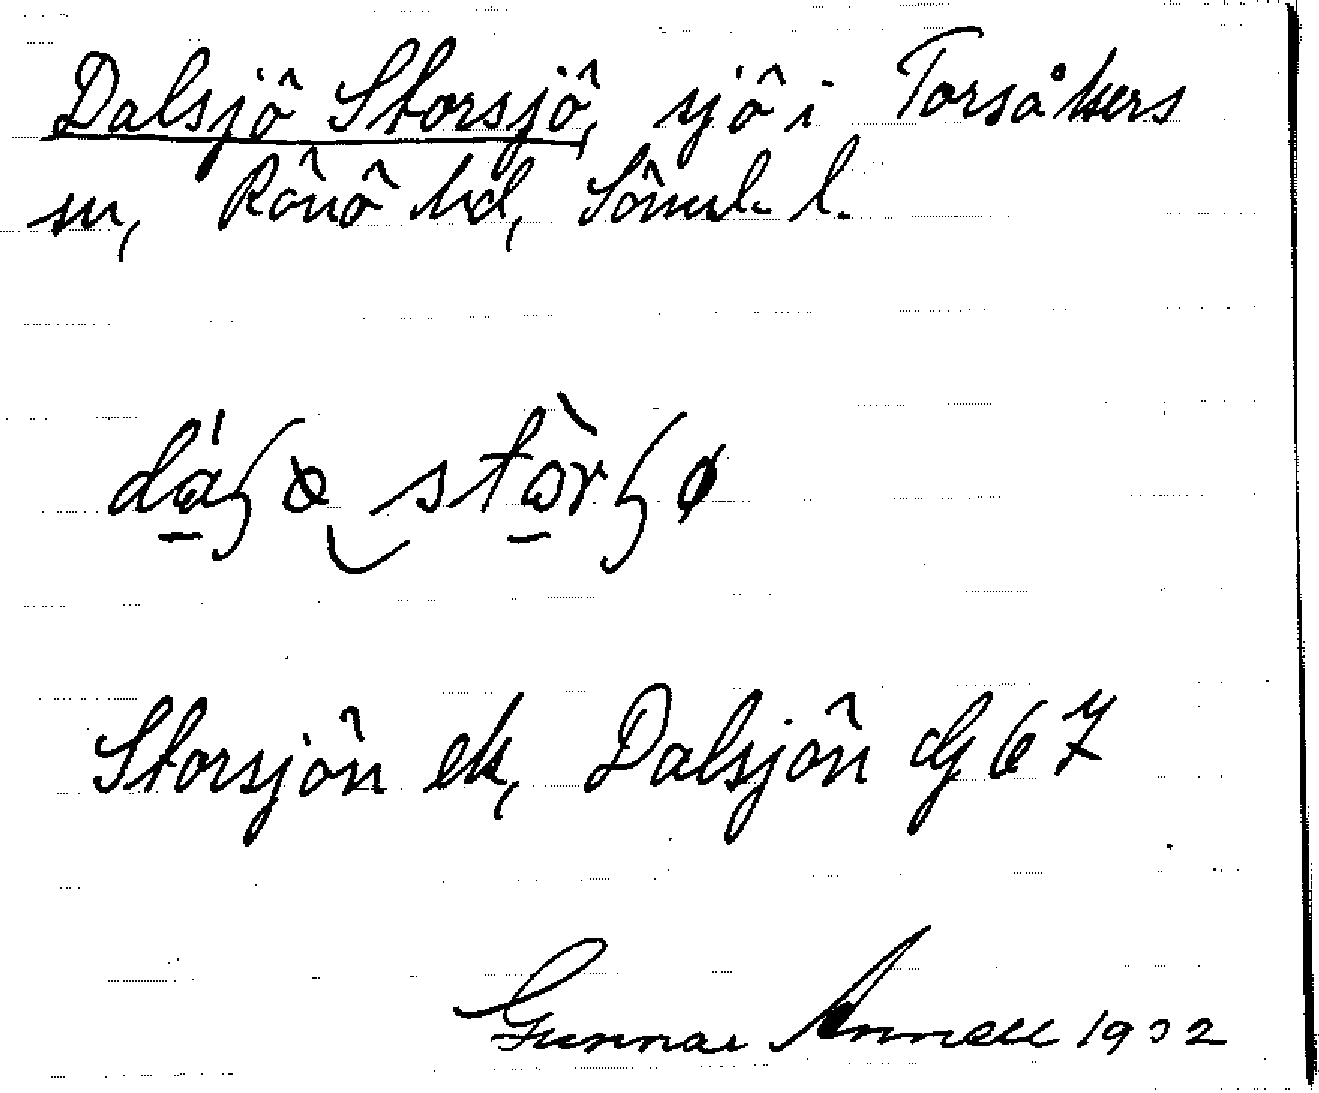 Dalsjö Storsjö, sjö i Torsåkers
sn, Rönö hd, Söml. l.
Storsjön ek, Dalsjön dg 67
Gunnar Annell 1932